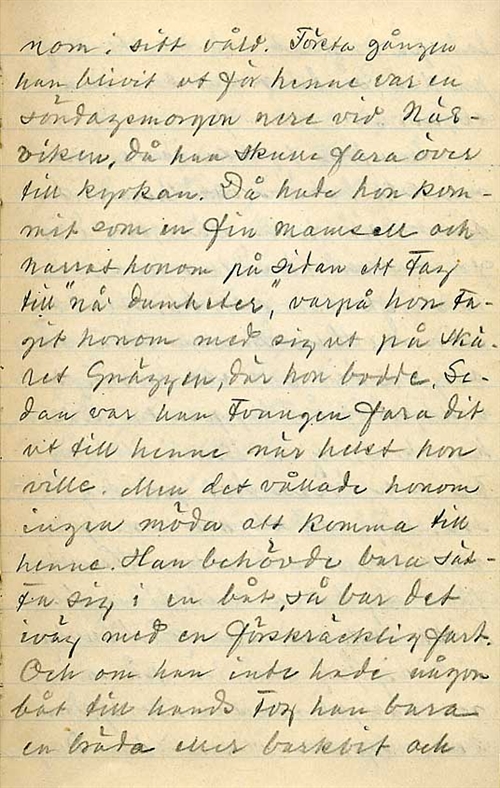 nom i sitt våld. Första gången
han blivit ut för henne var en
söndagsmorgon nere vid Näs-
viken, då han skulle fara över
till kyrkan. Då hade hon kom-
mit som en fin mamsell och
narrat honom på sidan ett tag
till "nå' dumheter", varpå hon ta-
git honom med sig ut på skä-
ret Gnäggen, där hon bodde. Se-
dan var han tvungen fara dit
ut till henne när helst hon
ville. Men det vållade honom
ingen möda att komma till
henne. Han behövde bara sät-
ta sig i en båt, så bar det
iväg med en förskräcklig fart.
Och om han inte hade någon
båt till hands tog han bara
en bräda eller barkbit och